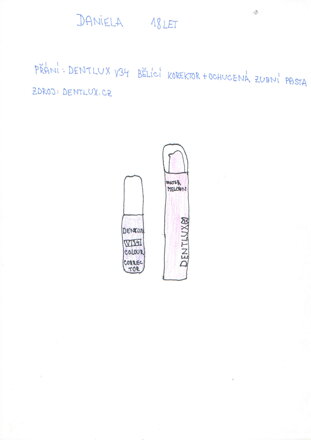 DANIELA 18 LET
PŘÁNÍ: DENTLUX V34 BĚLÍCÍ KOREKTOR + OCHUCENÁ ZUBNÍ PASTA
ZDROJ: DENTLUX.CZ
WATER
MELOWN
DENTLUX
DENTLUX
V34
COLOUR
CORREC
TOR